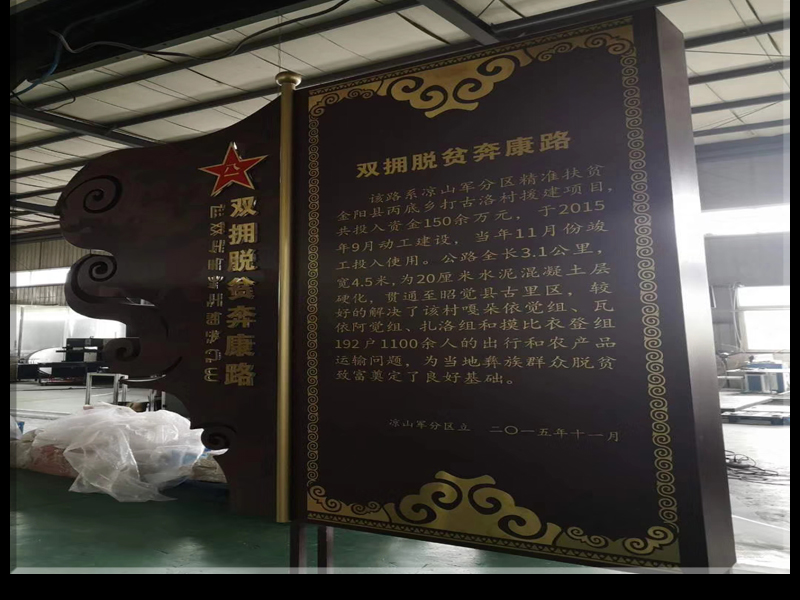 八一
双拥脱贫奔康路
双拥脱贫奔康路
该路系凉山军分区精准扶贫
金阳县丙底乡打古洛村援建项目，
共投入资金150余万元，于2015
年9月动工建设，当年11月份竣
工投入使用。公路全长3.1公里，
宽4.5米，为20厘米水泥混凝土层
硬化，贯通至昭觉县古里区，较
好的解决了该村嘎朵依觉组、瓦
依阿觉组、扎洛组和摸比衣登组
192户1100余人的出行和农产品
运输问题，为当地彝族群众脱贫
致富奠定了良好基础。
凉山军分区立 二〇一五年十一月